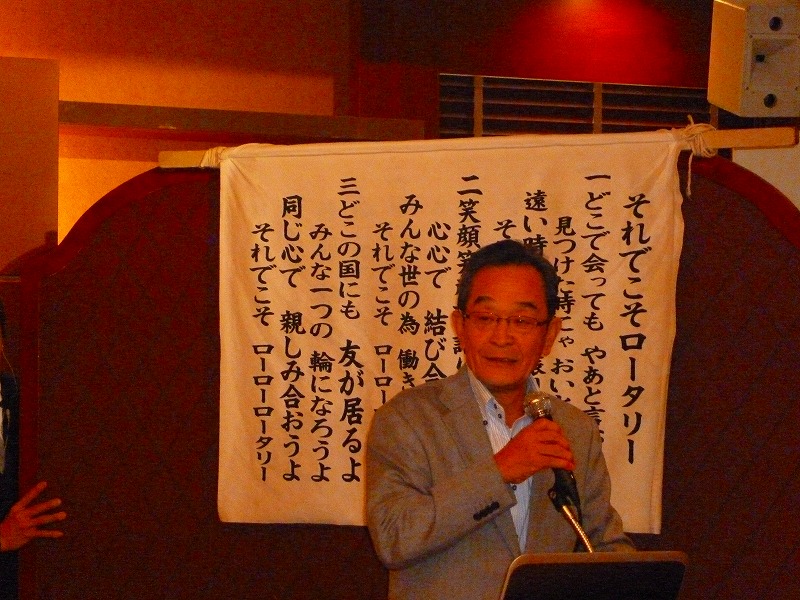 それでこそロータリー
一 どこで会っても やあと言
見つけた時にゃ おいと
遠い時
そ
二 笑顔笑
心心で 結び合
みんな世の為 働き
それでこそ ロー
三 どこの国にも 友が居るよ
みんな一つの 輪になろうよ
同じ心で 親しみ合おうよ
それでこそ ローローロータリー